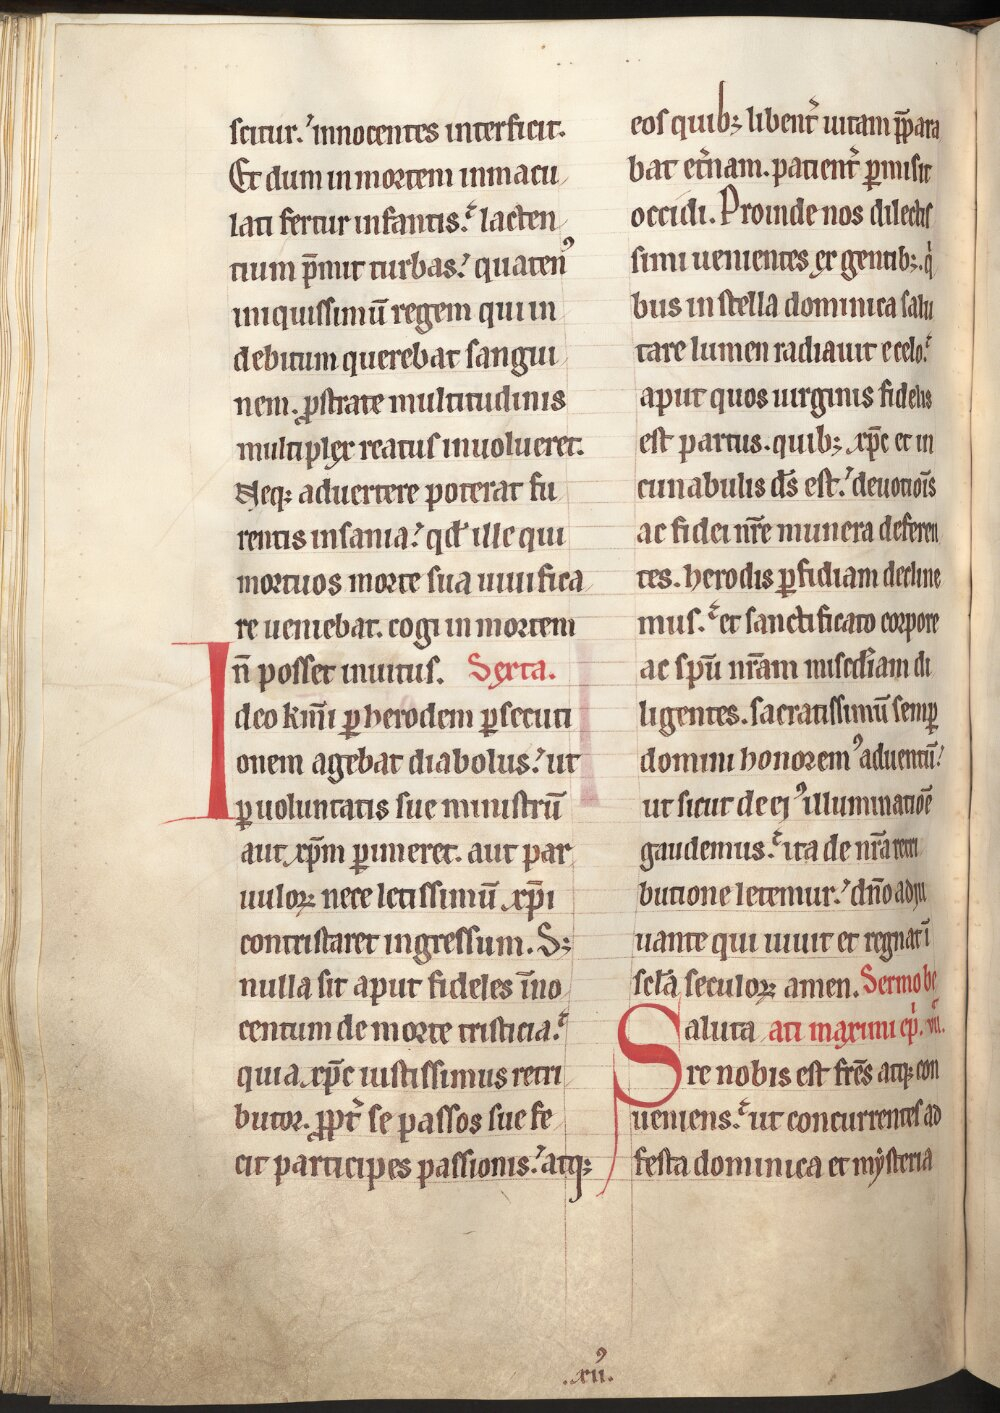 scitur. innocentes interficit.
Et dum in mortem inmacu
lati fertur infantis. lacten
tium p̄mit turbas. quaten᾿
iniquissimū regem qui in
debitum querebat sangui
nem. ꝓstrate multitudinis
multiplex reatus inuolueret.
Neq; aduertere poterat fu
rentis insania. qd̛ ille qui
mortuos morte sua uiuifica
re ueniebat. cogi in mortem
n̄ posset inuitus. Sexta.
Ideo km̄i ꝑ herodem ꝑsecuti
onem agebat diabolus. ut
ꝑ uoluntatis sue ministrū
aut xp̄m ꝑimeret. aut par
uuloꝝ nece letissimū xp̄i
contristaret ingressum. S;
nulla sit aput fideles īno
centum de morte tristicia.
quia xp̄c iustissimus retri
butor. ꝓpt̄ se passos sue fe
cit participes passionis. atq;
eos quib; libent̄ uitam p̄para
bat et̄nam. patient̄ ꝑmisit
occidi. Proinde nos dilectis
simi uenientes ex gentib;. q̇
bus in stella dominica salu
tare lumen radiauit e celo.
aput quos uirginis fidelis
est partus. quib; xp̄c et in
cunabulis ds̄ est. deuotiōis
ac fidei nr̄e munera deferen
tes. herodis ꝑfidiam decline
mus. et sanctificato corpore
ac spū nr̄am miscd̄iam di
ligentes. sacratissimū semꝑ
domini honorem᾿ aduentū.
ut sicut de ei᾿ illuminatiōe
gaudemus. ita de nr̄a retri
butione letemur. dn̄o adiu
uante qui uiuit et regnat ī
scl̄a seculoꝝ amen. Sermo be
Saluta ati maximi ep̄i. vii.
re nobis est frēs atq; con
ueniens. ut concurrentes ad
festa dominica et mẏsteria
.xii᾿.